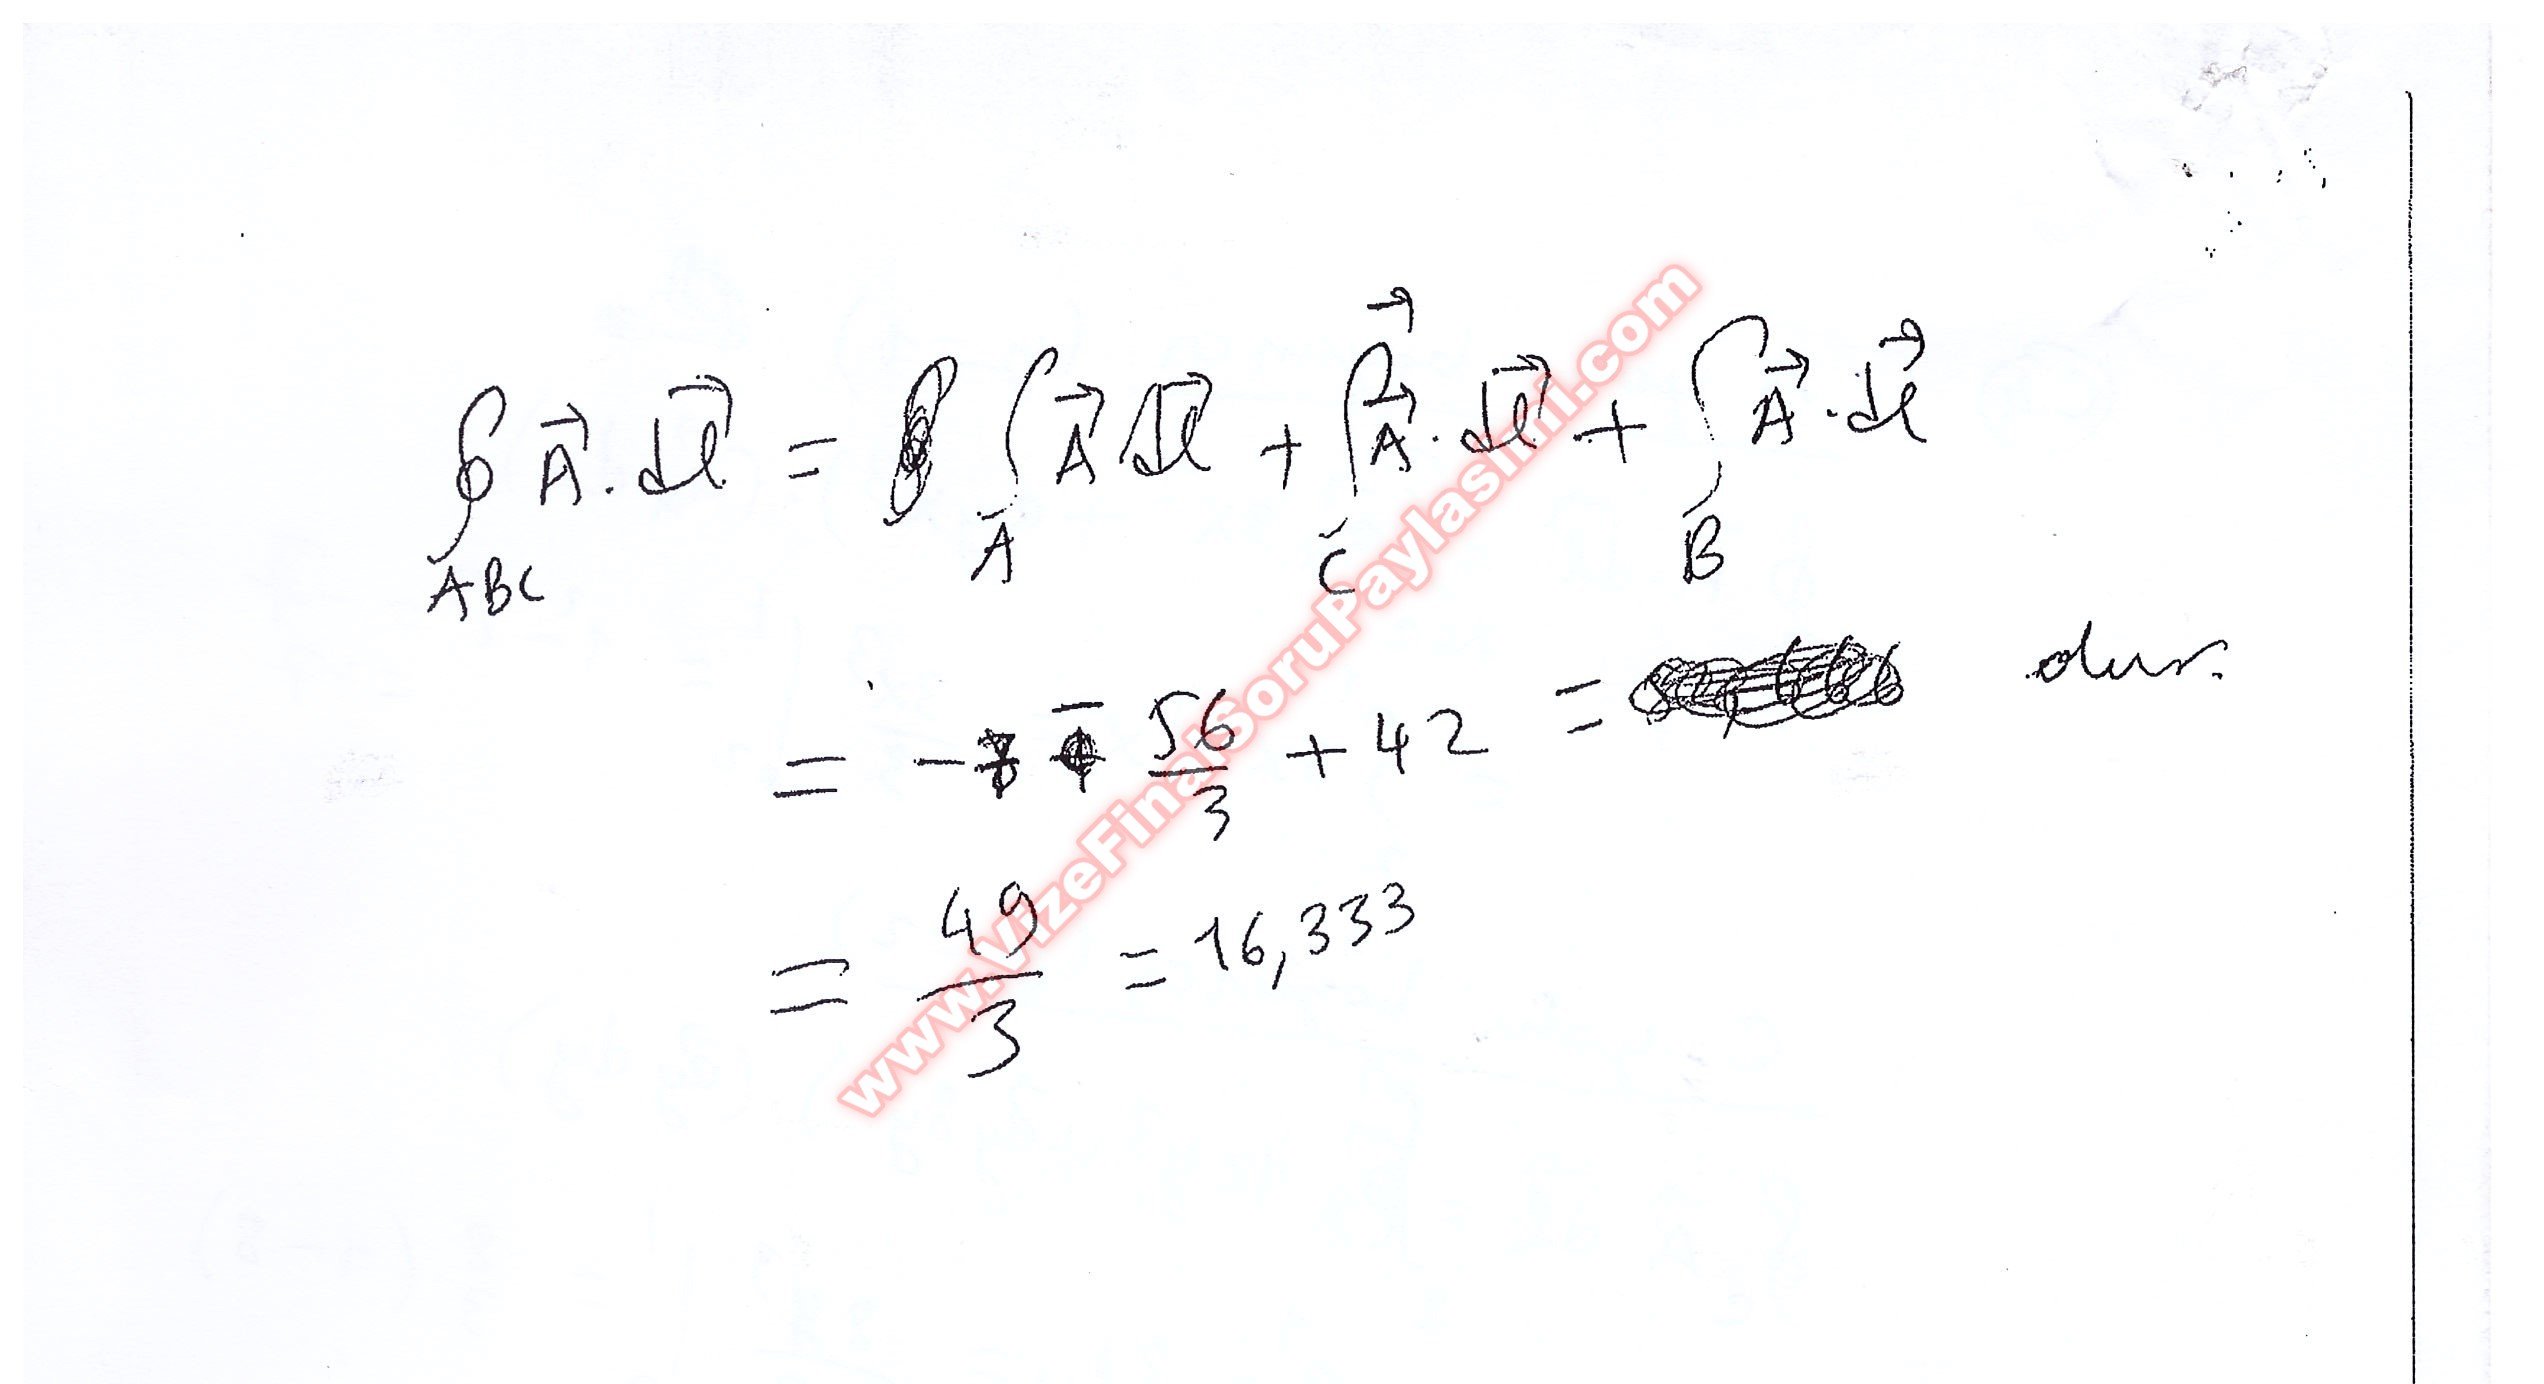 ∮ABC A⃗ . dl⃗ = ∫A A⃗ dl⃗ + ∫C A⃗ . dl⃗ + ∫B A⃗ . dl⃗
= -7 - 56/3 + 42 = dur.
= 49/3 = 16,333
www.VizeFinalSoruPaylasimi.com